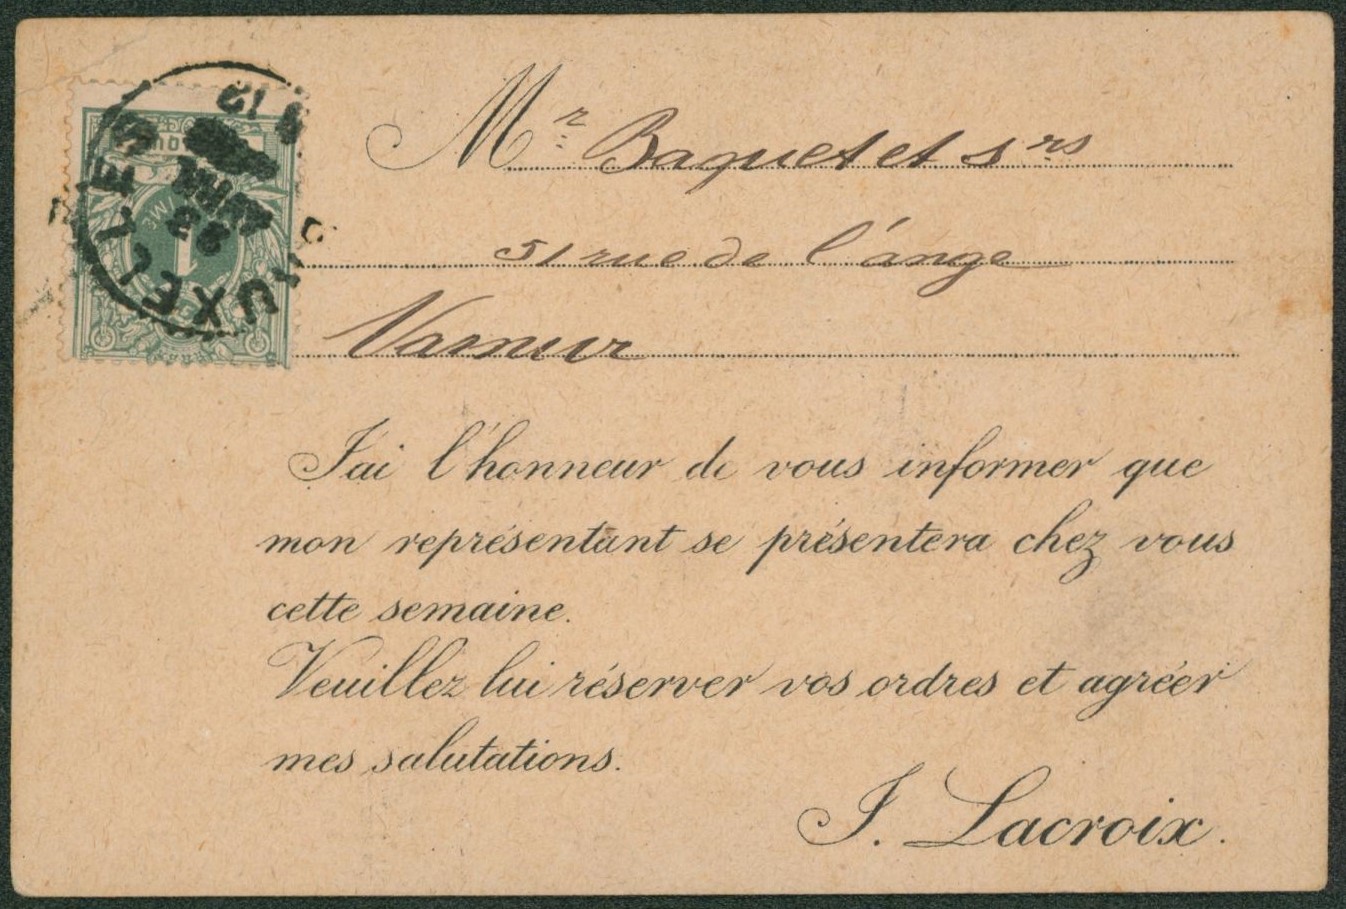 Mr. Baquet et srs
51 rue de l'ange
Namur
J'ai l'honneur de vous informer que
mon représentant se présentera chez vous
cette semaine.
Veuillez lui réserver vos ordres et agréer
mes salutations.
J. Lacroix.
1
12
23